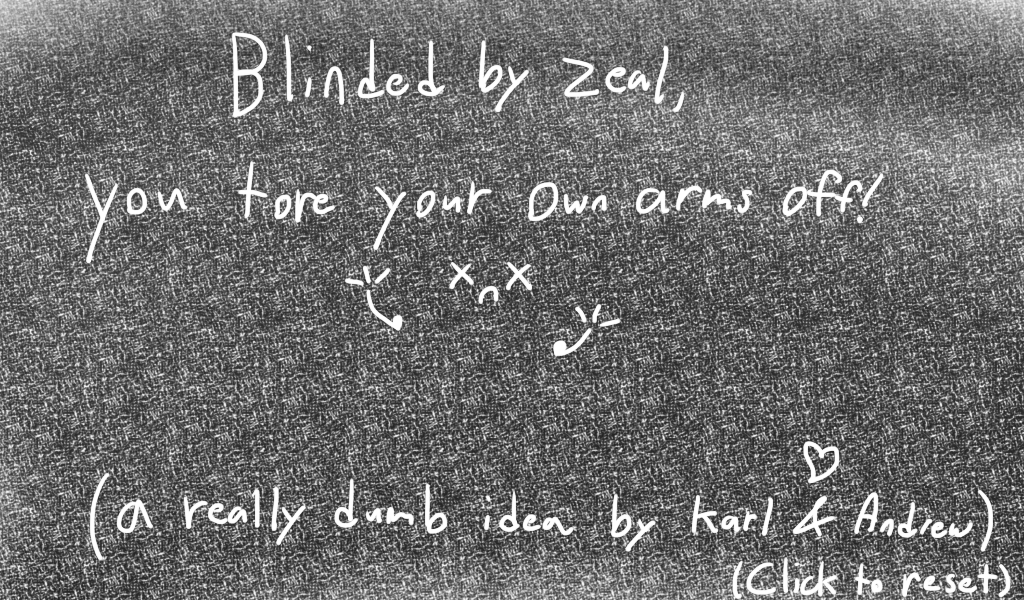 Blinded by zeal,
you tore your own arms off!
(a really dumb idea by karl & Andrew)
(Click to reset)